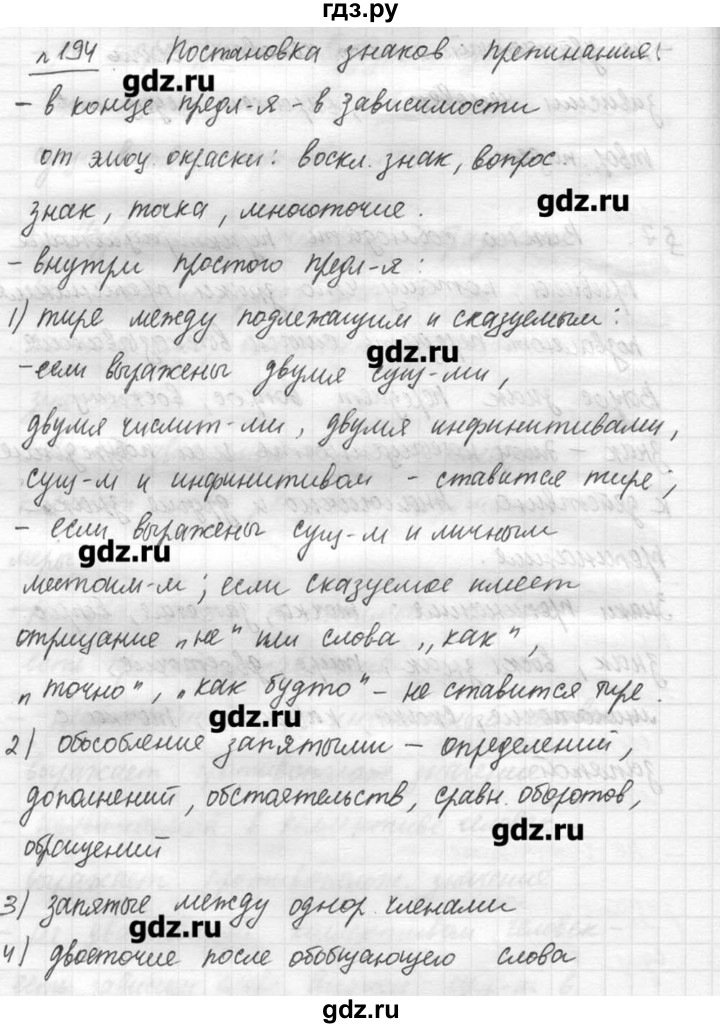 гдз.ру
n 194 Постановка знаков препинания:
gdz.ru
- в конце предл-я - в зависимости
от эмоц. окраски: воскл. знак, вопрос.
gdz.ru
знак, точка, многоточие.
- внутри простого предл-я:
1) тире между подлежащим и сказуемым:
gdz.ru
- если выражены двумя сущ-ми,
двумя числит-ми, двумя инфинитивами,
сущ-м и инфинитивом - ставится тире;
- если выражены сущ-м и личным
gdz.ru
местоим-м; если сказуемое имеет
отрицание „не" или слова „как",
„точно", „как будто" - не ставится тире.
gdz.ru
2) обособления запятыми - определений,
дополнений, обстоятельств, сравн. оборотов,
gdz.ru
обращений
3) запятые между однор. членами
gdz.ru
4) двоеточие после обобщающего слова
gdz.ru